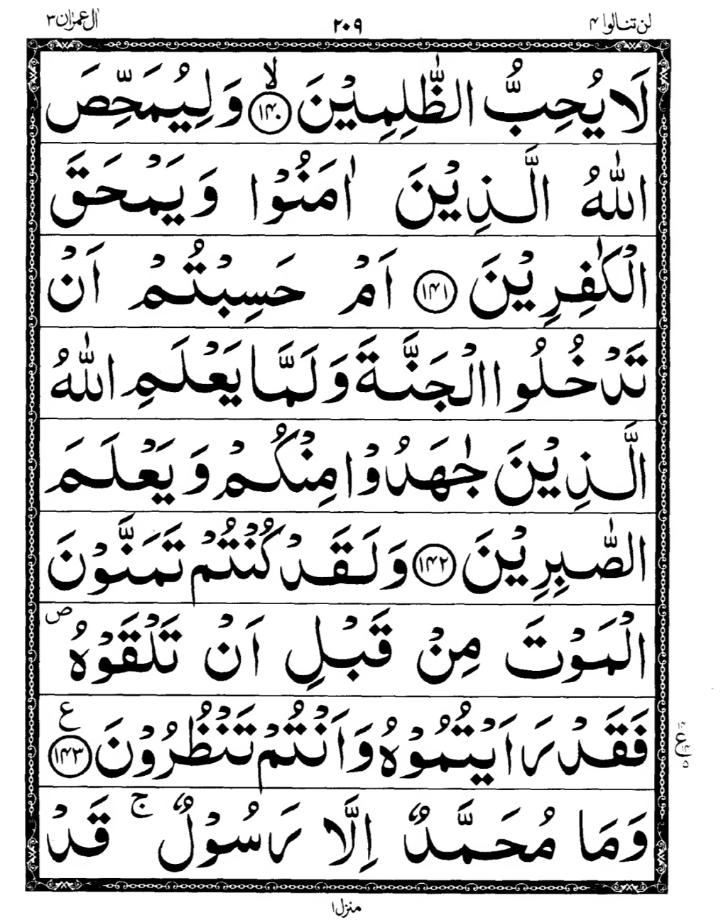 لن تنالوا ۴ ۲۰۹ اٰل عمرٰن ۳
لَا يُحِبُّ الظّٰلِمِيْنَ ۙ﴿۱۴۰﴾ وَلِيُمَحِّصَ
اللّٰهُ الَّذِيْنَ اٰمَنُوْا وَيَمْحَقَ
الْكٰفِرِيْنَ ﴿۱۴۱﴾ اَمْ حَسِبْتُمْ اَنْ
تَدْخُلُوا الْجَنَّةَ وَلَمَّا يَعْلَمِ اللّٰهُ
الَّذِيْنَ جٰهَدُوْا مِنْكُمْ وَيَعْلَمَ
الصّٰبِرِيْنَ ﴿۱۴۲﴾ وَلَقَدْ كُنْتُمْ تَمَنَّوْنَ
الْمَوْتَ مِنْ قَبْلِ اَنْ تَلْقَوْهُ ص
فَقَدْ رَاَيْتُمُوْهُ وَاَنْتُمْ تَنْظُرُوْنَ ﴿۱۴۳﴾ ع
وَمَا مُحَمَّدٌ اِلَّا رَسُوْلٌ ۚ قَدْ
منزل ۱